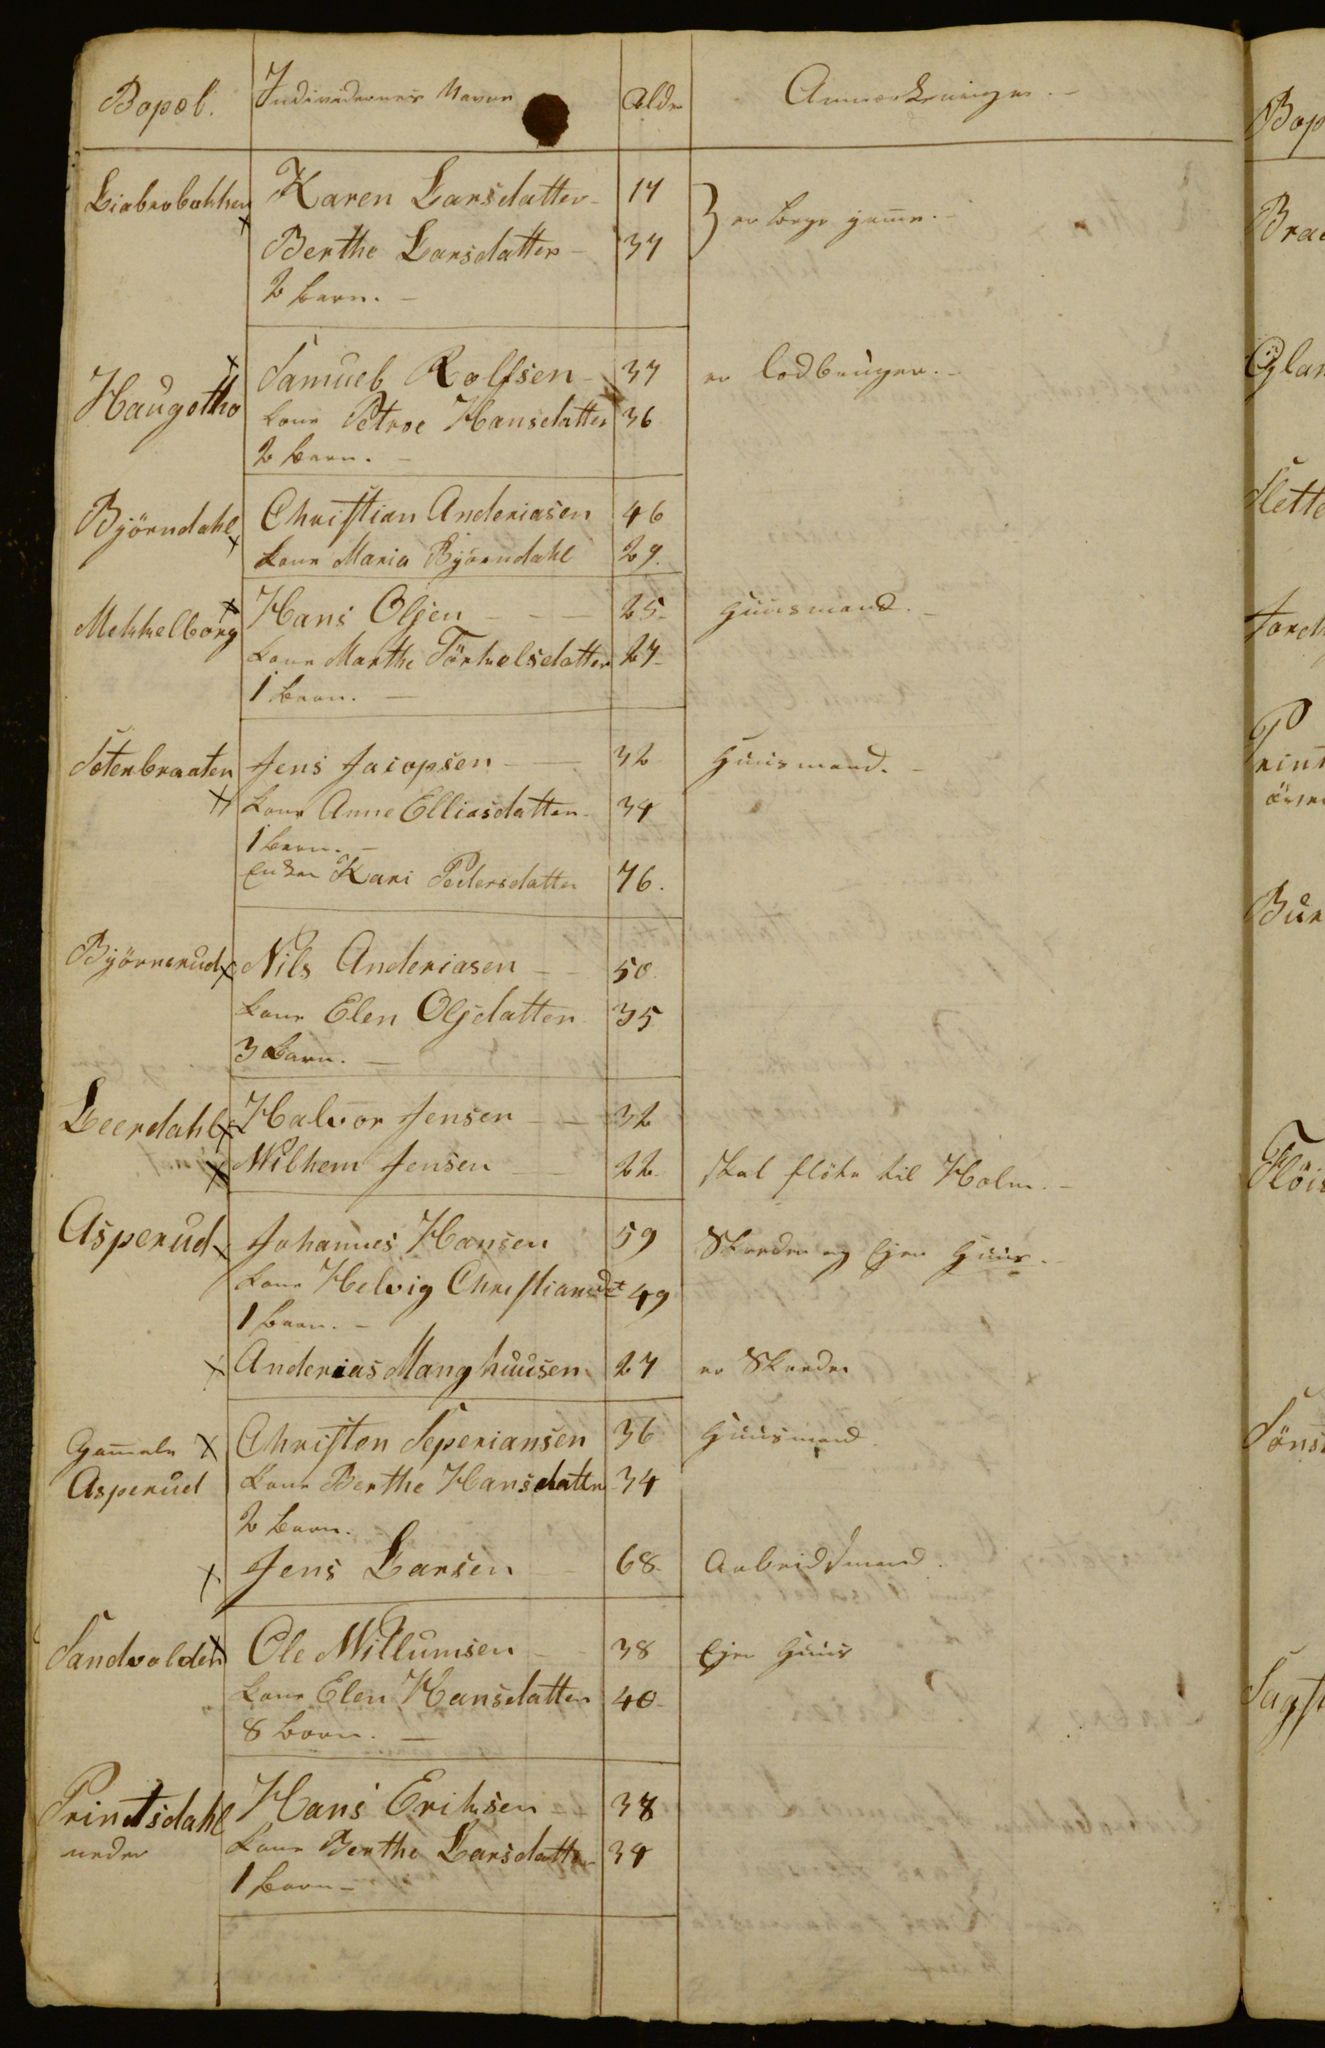 Bopæl. Individernes Navne Alder Anmærkninger. -
Liabrobakken Karen Larsdatter - 17
Berthe Larsdatter - 37 } er begge hjemme. -
2 Barn. -
Haugotho Samuel Rolfsen - 37 er Lodbruger. -
Kone Petroe Hansdatter 36
2 Barn. -
Bjørndahl Christian Anderiasen 46
Kone Maria Bjørndahl 29.
Mekkelborg Hans Olsen - - - 25 - Huusmand. -
Kone Marthe Törkelsdatter 27 -
1 Barn. -
Soterbraaten Jens Jacopsen - - 32 Huusmand. -
Kone Anne Elliasdatter - 34
1 Barn. -
Enken Kari Pedersdatter 76.
Bjørnsrud Nils Anderiasen - - 50.
Kone Elen Olsdatter 35
3 Barn. -
Leerdahl Halvor Jensen - - 32
Wilhem Jensen - 22. skal fløtte til Holm. -
Asperud Johannes Hansen 59 Skreder og Ejer Huus. -
Kone Helvig Christiansdt 49
1 Barn. -
Anderias Manghuusen 27 er Skreder
Gamele Christen Seperiansen 36 Huusmand
Asperud Kone Berthe Hansdatter 34
2 Barn.
Jens Larsen - 68. Arbeidsmand.
Sandvolden Ole Willumsen - 38 Ejer Huus
Kone Elen Hansdatter 40 -
8 Børn. -
Printsdahl Hans Eriksen 38
neder Kone Berthe Larsdatter 34
1 Barn -